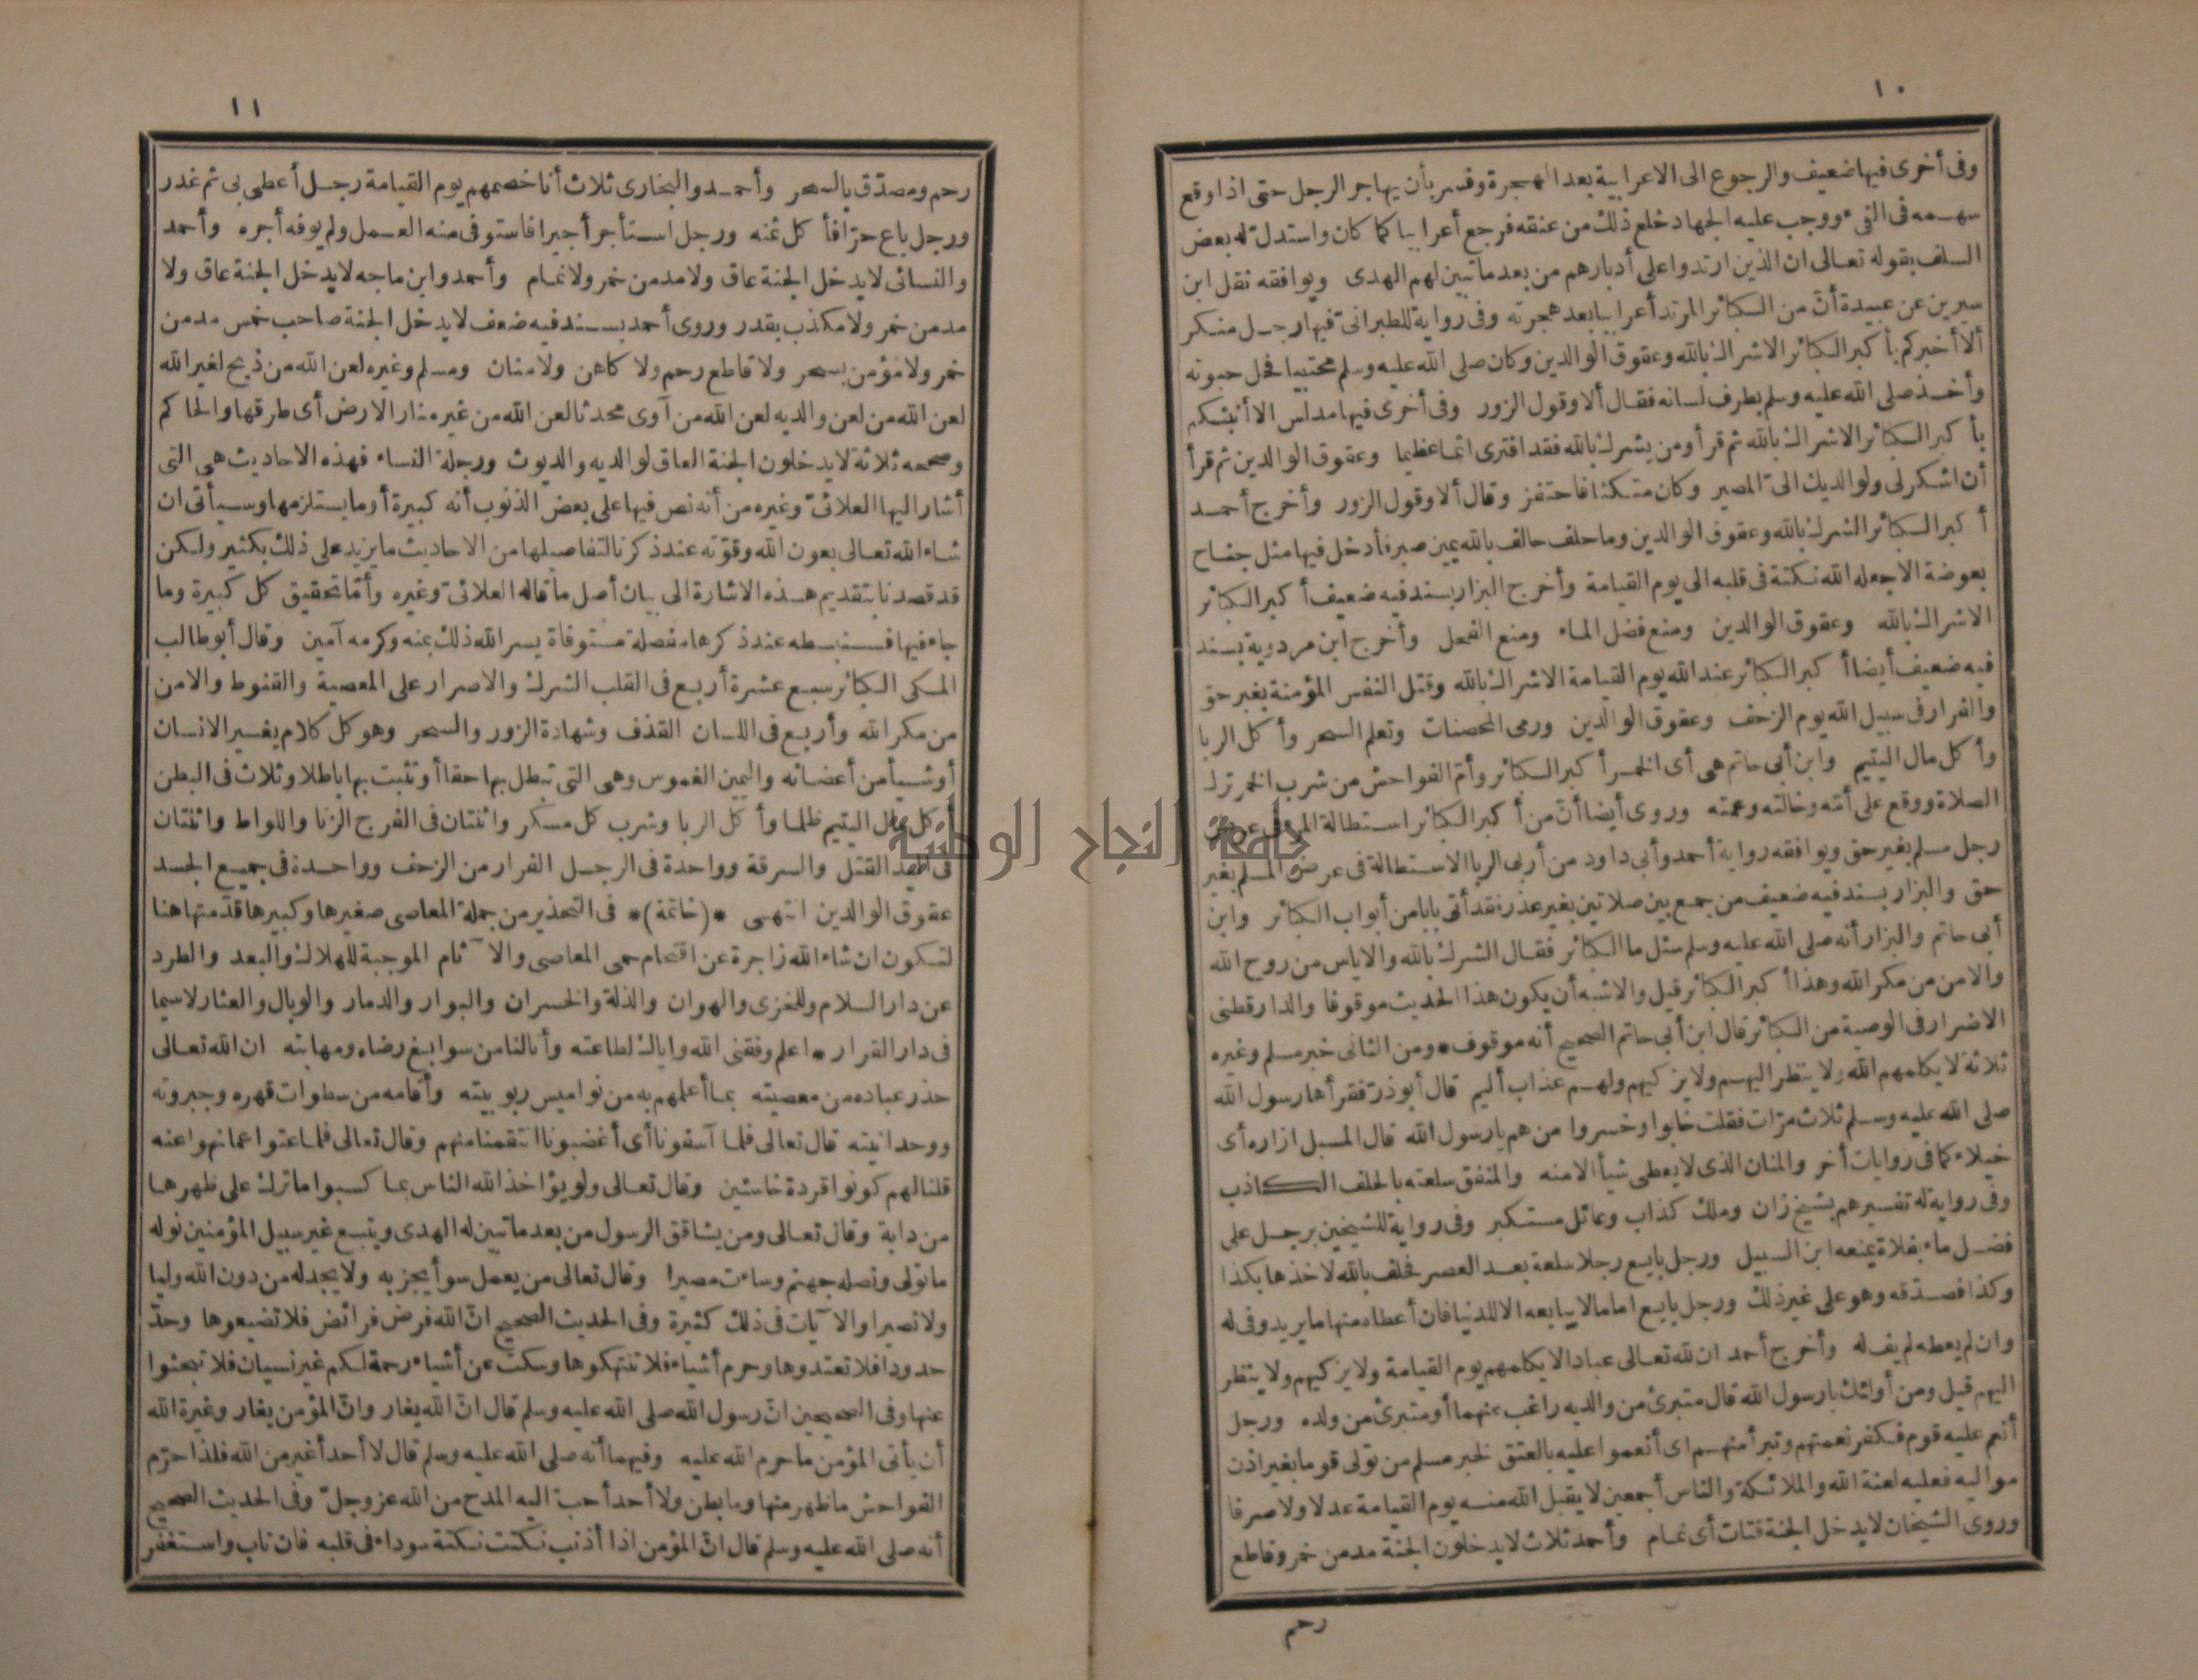 ١٠
وفى أخرى فيها ضعيف والرجوع الى الاعرابية بعد الهجرة وفسر بأن يهاجر الرجل حتى اذا وقع
سهمه فى الفىء ووجب عليه الجهاد خلع ذلك من عنقه فرجع أعرابيا كما كان واستدل له بعض
السلف بقوله تعالى ان الذين ارتدوا على أدبارهم من بعد ما تبين لهم الهدى ويوافقه نقل ابن
سيرين عن عبيدة أنّ من الكبائر المرتد أعرابيا بعد هجرته وفى رواية للطبرانىّ فيها رجل منكر
ألا أخبركم بأكبر الكبائر الاشراك بالله وعقوق الوالدين وكان صلى الله عليه وسلم محتبيا فحل حبوته
وأخذ صلى الله عليه وسلم بطرف لسانه فقال ألا وقول الزور وفى أخرى فيها مدلس الا أنبئكم
بأكبر الكبائر الاشراك بالله ثم قرأ ومن يشرك بالله فقد افترى اثما عظيما وعقوق الوالدين ثم قرأ
أن اشكر لى ولوالديك الىّ المصير وكان متكئا فاحتفز وقال ألا وقول الزور وأخرج أحمد
أكبر الكبائر الشرك بالله وعقوق الوالدين وما حلف حالف بالله يمين صبر فأدخل فيها مثل جناح
بعوضة الا جعله الله نكتة فى قلبه الى يوم القيامة وأخرج البزار بسند فيه ضعيف أكبر الكبائر
الاشراك بالله وعقوق الوالدين ومنع فضل الماء ومنع الفحل وأخرج ابن مردويه بسند
فيه ضعيف أيضا أكبر الكبائر عند الله يوم القيامة الاشراك بالله وقتل النفس المؤمنة بغير حق
والفرار فى سبيل الله يوم الزحف وعقوق الوالدين ورمى المحصنات وتعلم السحر وأكل الربا
وأكل مال اليتيم وابن أبى حاتم هى أى الخمر أكبر الكبائر وأم الفواحش من شرب الخمر ترك
الصلاة ووقع على أمّه وخالته وعمته وروى أيضا أنّ من أكبر الكبائر استطالة المرء فى عرض
رجل مسلم بغير حق ويوافقه رواية أحمد وأبى داود من أربى الربا الاستطالة فى عرض المسلم بغير
حق والبزار بسند فيه ضعيف من جمع بين صلاتين بغير عذر فقد أتى بابا من أبواب الكبائر وابن
أبى حاتم والبزار أنه صلى الله عليه وسلم سئل ما الكبائر فقال الشرك بالله والاياس من روح الله
والامن من مكر الله وهذا أكبر الكبائر قيل والاشبه أن يكون هذا الحديث موقوفا والدارقطنى
الاضرار فى الوصية من الكبائر قال ابن أبى حاتم الصحيح أنه موقوف * ومن الثانى خبر مسلم وغيره
ثلاثة لا يكلمهم الله ولا ينظر اليهم ولا يزكيهم ولهم عذاب أليم قال أبو ذرّ فقرأها رسول الله
صلى الله عليه وسلم ثلاث مرّات فقلت خابوا وخسروا من هم يا رسول الله قال المسبل ازاره أى
خيلاء كما فى روايات أخر والمنان الذى لا يعطى شيأ الا منه والمنفق سلعته بالحلف الكاذب
وفى رواية له تفسيرهم بشيخ زان وملك كذاب وعائل مستكبر وفى رواية للشيخين برجل على
فضل ماء بفلاة يمنعه ابن السبيل ورجل بايع رجلا سلعة بعد العصر فحلف بالله لاخذها بكذا
وكذا فصدّقه وهو على غير ذلك ورجل بايع اماما لا يبايعه الا للدنيا فان أعطاه منها ما يريد وفى له
وان لم يعطه لم يف له وأخرج أحمد ان لله تعالى عبادا لا يكلمهم يوم القيامة ولا يزكيهم ولا ينظر
اليهم قيل ومن أولئك يا رسول الله قال متبرئ من والديه راغب عنهما أو متبرئ من ولده ورجل
أنعم عليه قوم فكفر نعمتهم وتبرأ منهم اى أنعموا عليه بالعتق لخبر مسلم من تولى قوما بغير اذن
مواليه فعليه لعنة الله والملائكة والناس أجمعين لا يقبل الله منه يوم القيامة عدلا ولا صرفا
وروى الشيخان لا يدخل الجنة قتات أى نمام وأحمد ثلاث لا يدخلون الجنة مدمن خمر وقاطع
رحم
١١
رحم ومصدّق بالسحر وأحمد والبخارى ثلاث أنا خصمهم يوم القيامة رجل أعطى بى ثم غدر
ورجل باع حرّا فأكل ثمنه ورجل استأجر أجيرا فاستوفى منه العمل ولم يوفه أجره وأحمد
والنسائى لا يدخل الجنة عاق ولا مدمن خمر ولا نمام وأحمد وابن ماجه لا يدخل الجنة عاق ولا
مدمن خمر ولا مكذب بقدر وروى أحمد بسند فيه ضعف لا يدخل الجنة صاحب خمس مدمن
خمر ولا مؤمن بسحر ولا قاطع رحم ولا كاهن ولا منان ومسلم وغيره لعن الله من ذبح لغير الله
لعن الله من لعن والديه لعن الله من آوى محدثا لعن الله من غير منار الارض أى طرقها والحاكم
وصححه ثلاثة لا يدخلون الجنة العاق لوالديه والديوث ورجلة النساء فهذه الاحاديث هى التى
أشار اليها العلائىّ وغيره من أنه نص فيها على بعض الذنوب أنه كبيرة أو ما يستلزمها وسيأتى ان
شاء الله تعالى بعون الله وقوّته عند ذكرنا لتفاصيلها من الاحاديث ما يزيد على ذلك بكثير ولكن
قد قصدنا بتقديم هذه الاشارة الى بيان أصل ما قاله العلائىّ وغيره وأمّا تحقيق كل كبيرة وما
جاء فيها فسنبسطه عند ذكرها مفصلة مستوفاة يسر الله ذلك بمنه وكرمه آمين وقال أبو طالب
المكى الكبائر سبع عشرة أربع فى القلب الشرك والاصرار على المعصية والقنوط والامن
من مكر الله وأربع فى اللسان القذف وشهادة الزور والسحر وهو كل كلام يغير الانسان
أو شيأ من أعضائه واليمين الغموس وهى التى تبطل بها حقا أو تثبت بها باطلا وثلاث فى البطن
أكل مال اليتيم ظلما وأكل الربا وشرب كل مسكر واثنتان فى الفرج الزنا واللواط واثنتان
فى اليد القتل والسرقة وواحدة فى الرجل الفرار من الزحف وواحدة فى جميع الجسد
عقوق الوالدين انتهى *(خاتمة)* فى التحذير من جملة المعاصى صغيرها وكبيرها قدّمتها هنا
لتكون ان شاء الله زاجرة عن اقتحام حمى المعاصى والآثام الموجبة للهلاك والبعد والطرد
عن دار السلام وللخزى والهوان والذلة والخسران والبوار والدمار والوبال والعثار لا سيما
فى دار القرار * اعلم وفقنى الله واياك لطاعته وأنالنا من سوابغ رضاه ومهابته ان الله تعالى
حذر عباده من معصيته بما أعلمهم به من نواميس ربوبيته وأقامه من سطوات قهره وجبروته
ووحدانيته قال تعالى فلما آسفونا أى أغضبونا انتقمنا منهم وقال تعالى فلما عتوا عما نهوا عنه
قلنا لهم كونوا قردة خاسئين وقال تعالى ولو يؤاخذ الله الناس بما كسبوا ما ترك على ظهرها
من دابة وقال تعالى ومن يشاقق الرسول من بعد ما تبين له الهدى ويتبع غير سبيل المؤمنين نوله
ما تولى ونصله جهنم وساءت مصيرا وقال تعالى من يعمل سوأ يجز به ولا يجد له من دون الله وليا
ولا نصيرا والآيات فى ذلك كثيرة وفى الحديث الصحيح انّ الله فرض فرائض فلا تضيعوها وحدّ
حدودا فلا تعتدوها وحرم أشياء فلا تنتهكوها وسكت عن أشياء رحمة لكم غير نسيان فلا تبحثوا
عنها وفى الصحيحين انّ رسول الله صلى الله عليه وسلم قال انّ الله يغار وانّ المؤمن يغار وغيرة الله
أن يأتى المؤمن ما حرم الله عليه وفيهما أنه صلى الله عليه وسلم قال لا أحد أغير من الله فلذا حرّم
الفواحش ما ظهر منها وما بطن ولا أحد أحبّ اليه المدح من الله عز وجلّ وفى الحديث الصحيح
أنه صلى الله عليه وسلم قال انّ المؤمن اذا أذنب نكتت نكتة سوداء فى قلبه فان تاب واستغفر
جامعة النجاح الوطنية